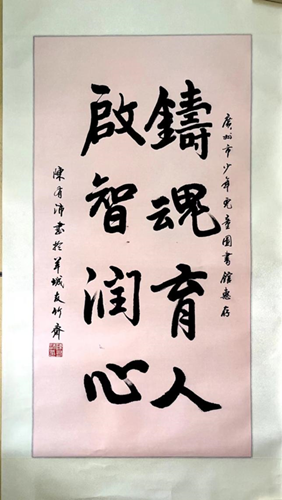 廣州市少年兒童圖書館惠存
鑄魂育人
啟智潤心
陳有沛書於羊城友竹齋